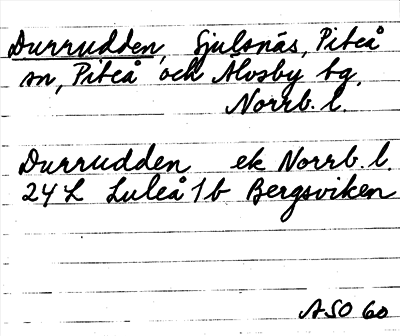 Durrudden, Sjulsnäs, Piteå
sn, Piteå och Älvsby tg,
Norrb. l.
Durrudden ek Norrb. l.
24 L Luleå 1b Bergsviken
ASO 60